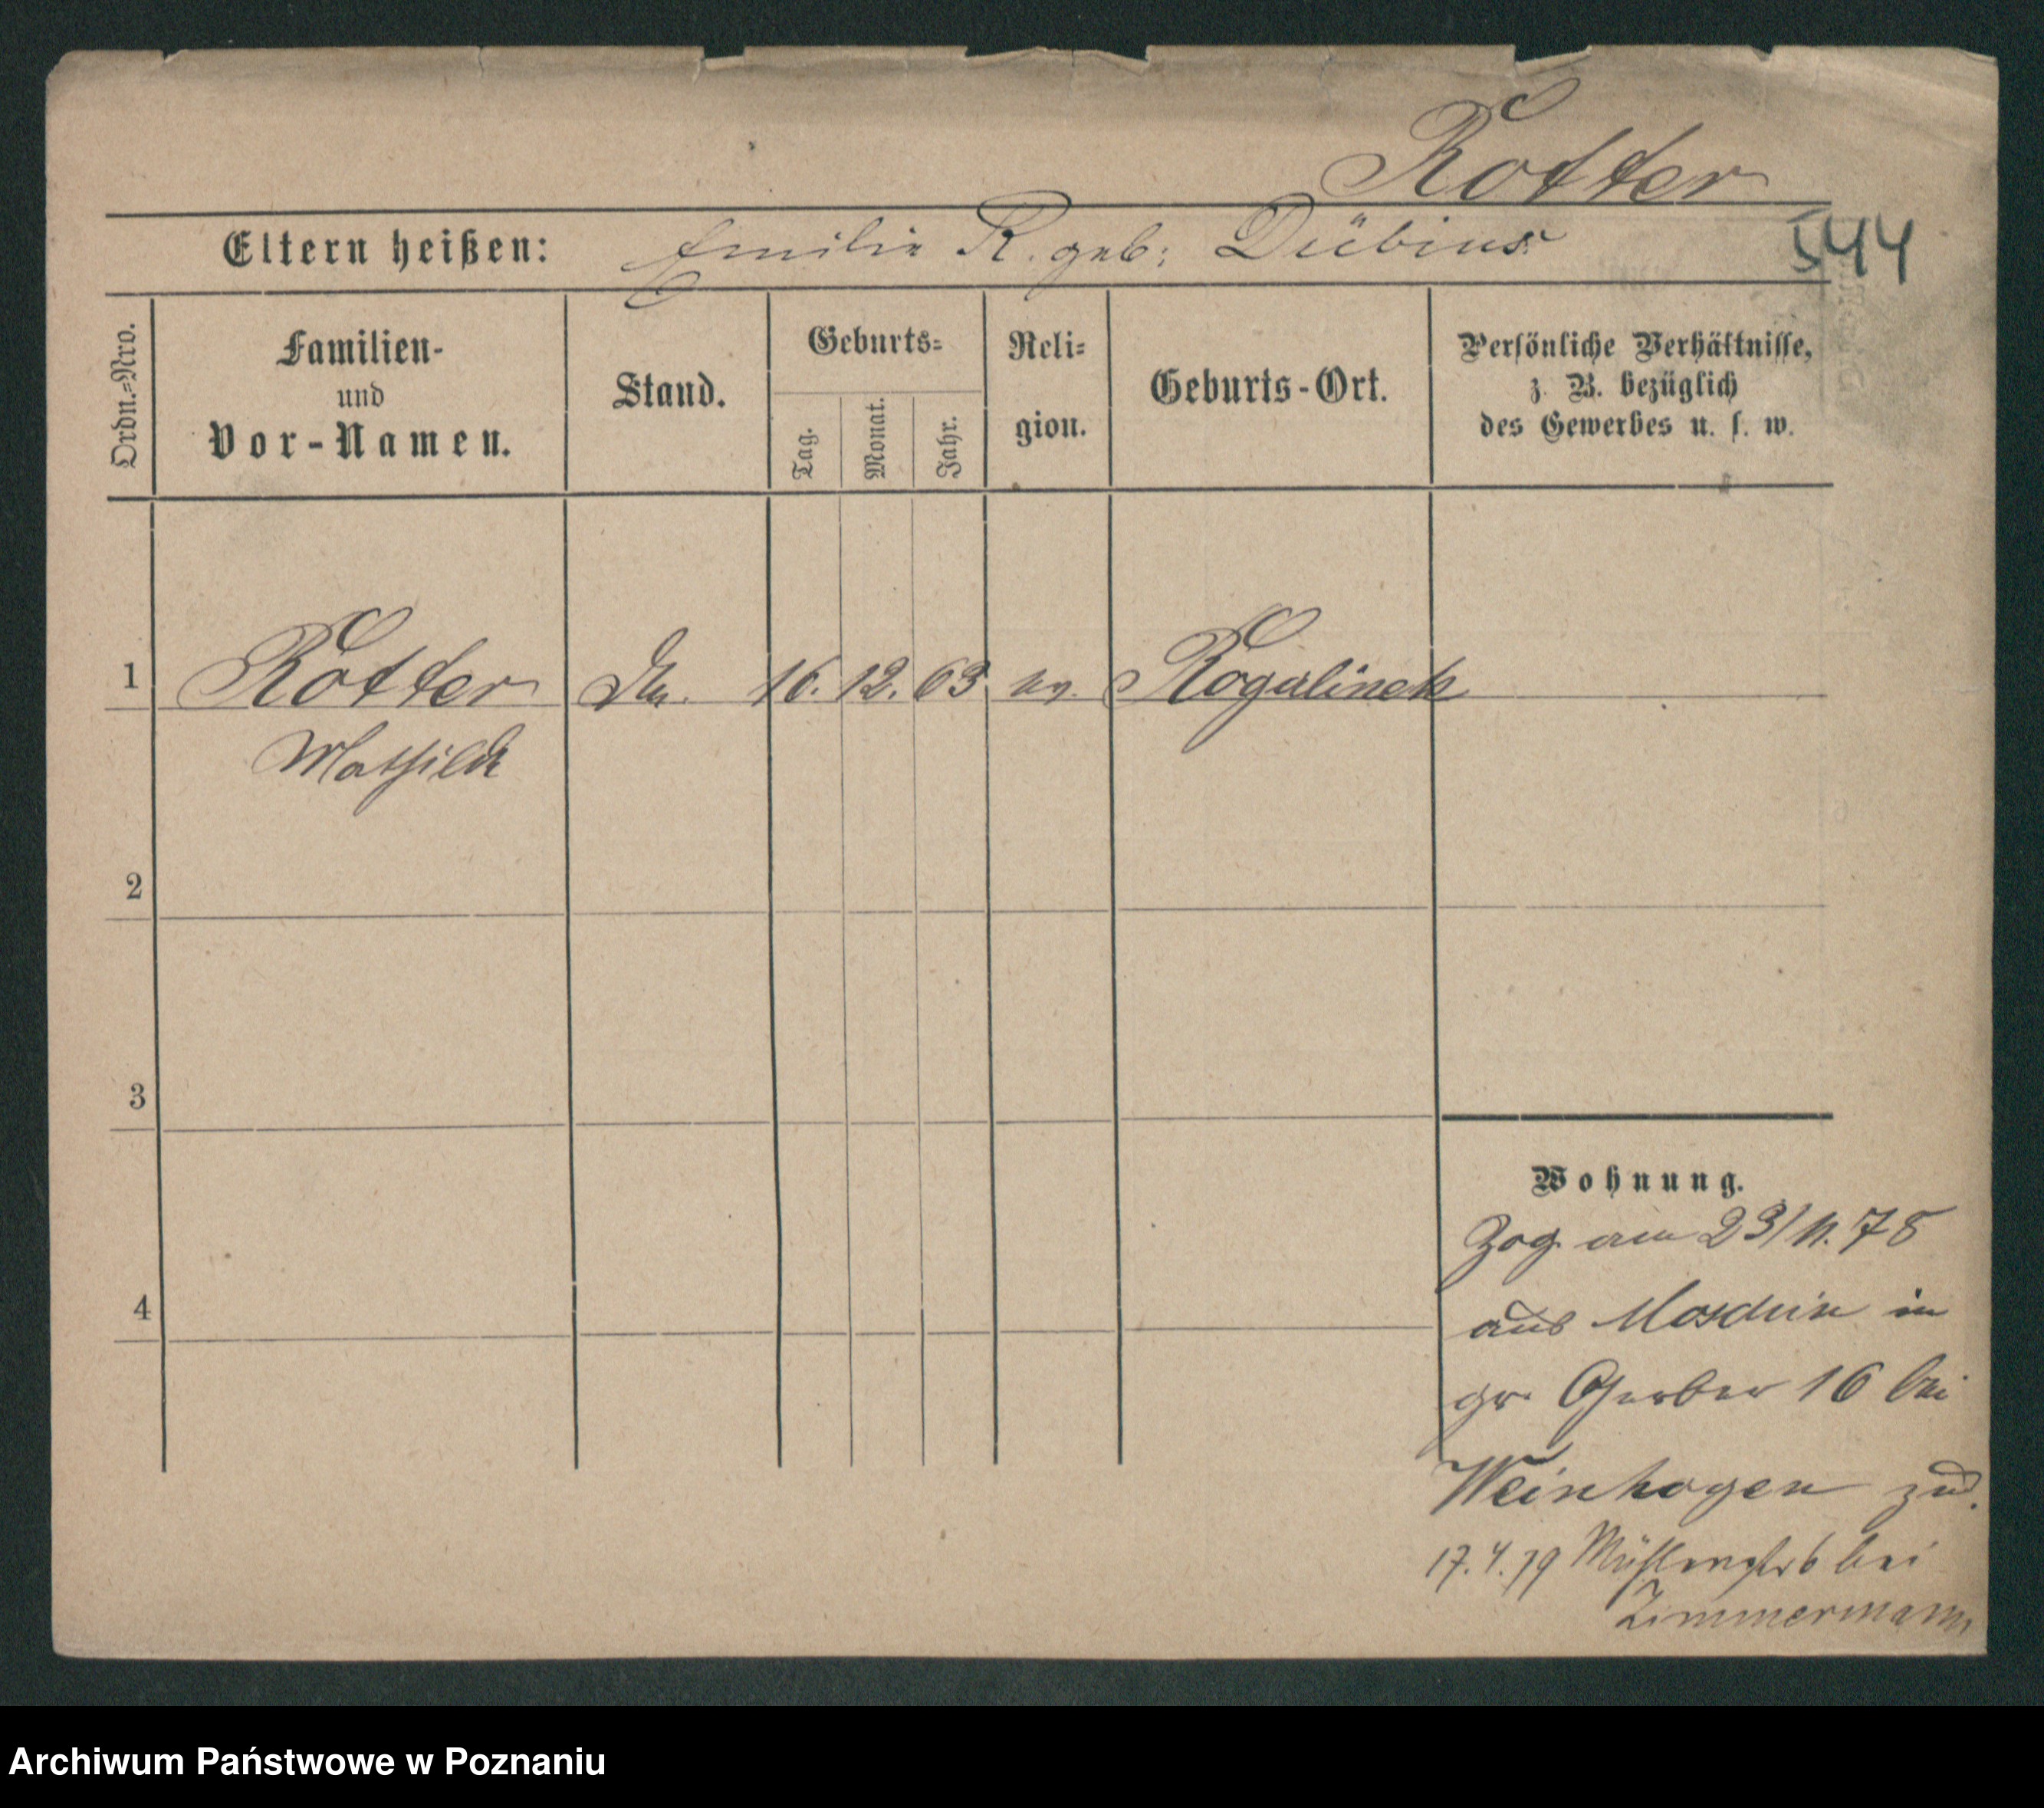 Rotter
Eltern heißen: Emilie R. geb: Dübius
544
Ordn.=Nro.
Familien-
und
Vor-Namen.
Stand.
Geburts=
Tag.
Monat.
Jahr.
Reli=
gion.
Geburts-Ort.
Persönliche Verhältnisse,
z. B. bezüglich
des Gewerbes u. s. w.
1 Rotter 16. 12. 63 ev. Rogalinek
Mathilde
2
3
4
Wohnung.
Zog am 23/11. 78
aus Moschin in
gr. Gerber 16 bei
Weinhagen zu.
17.4.79 Mühlenstr 6 bei
Zimmermann
Archiwum Państwowe w Poznaniu